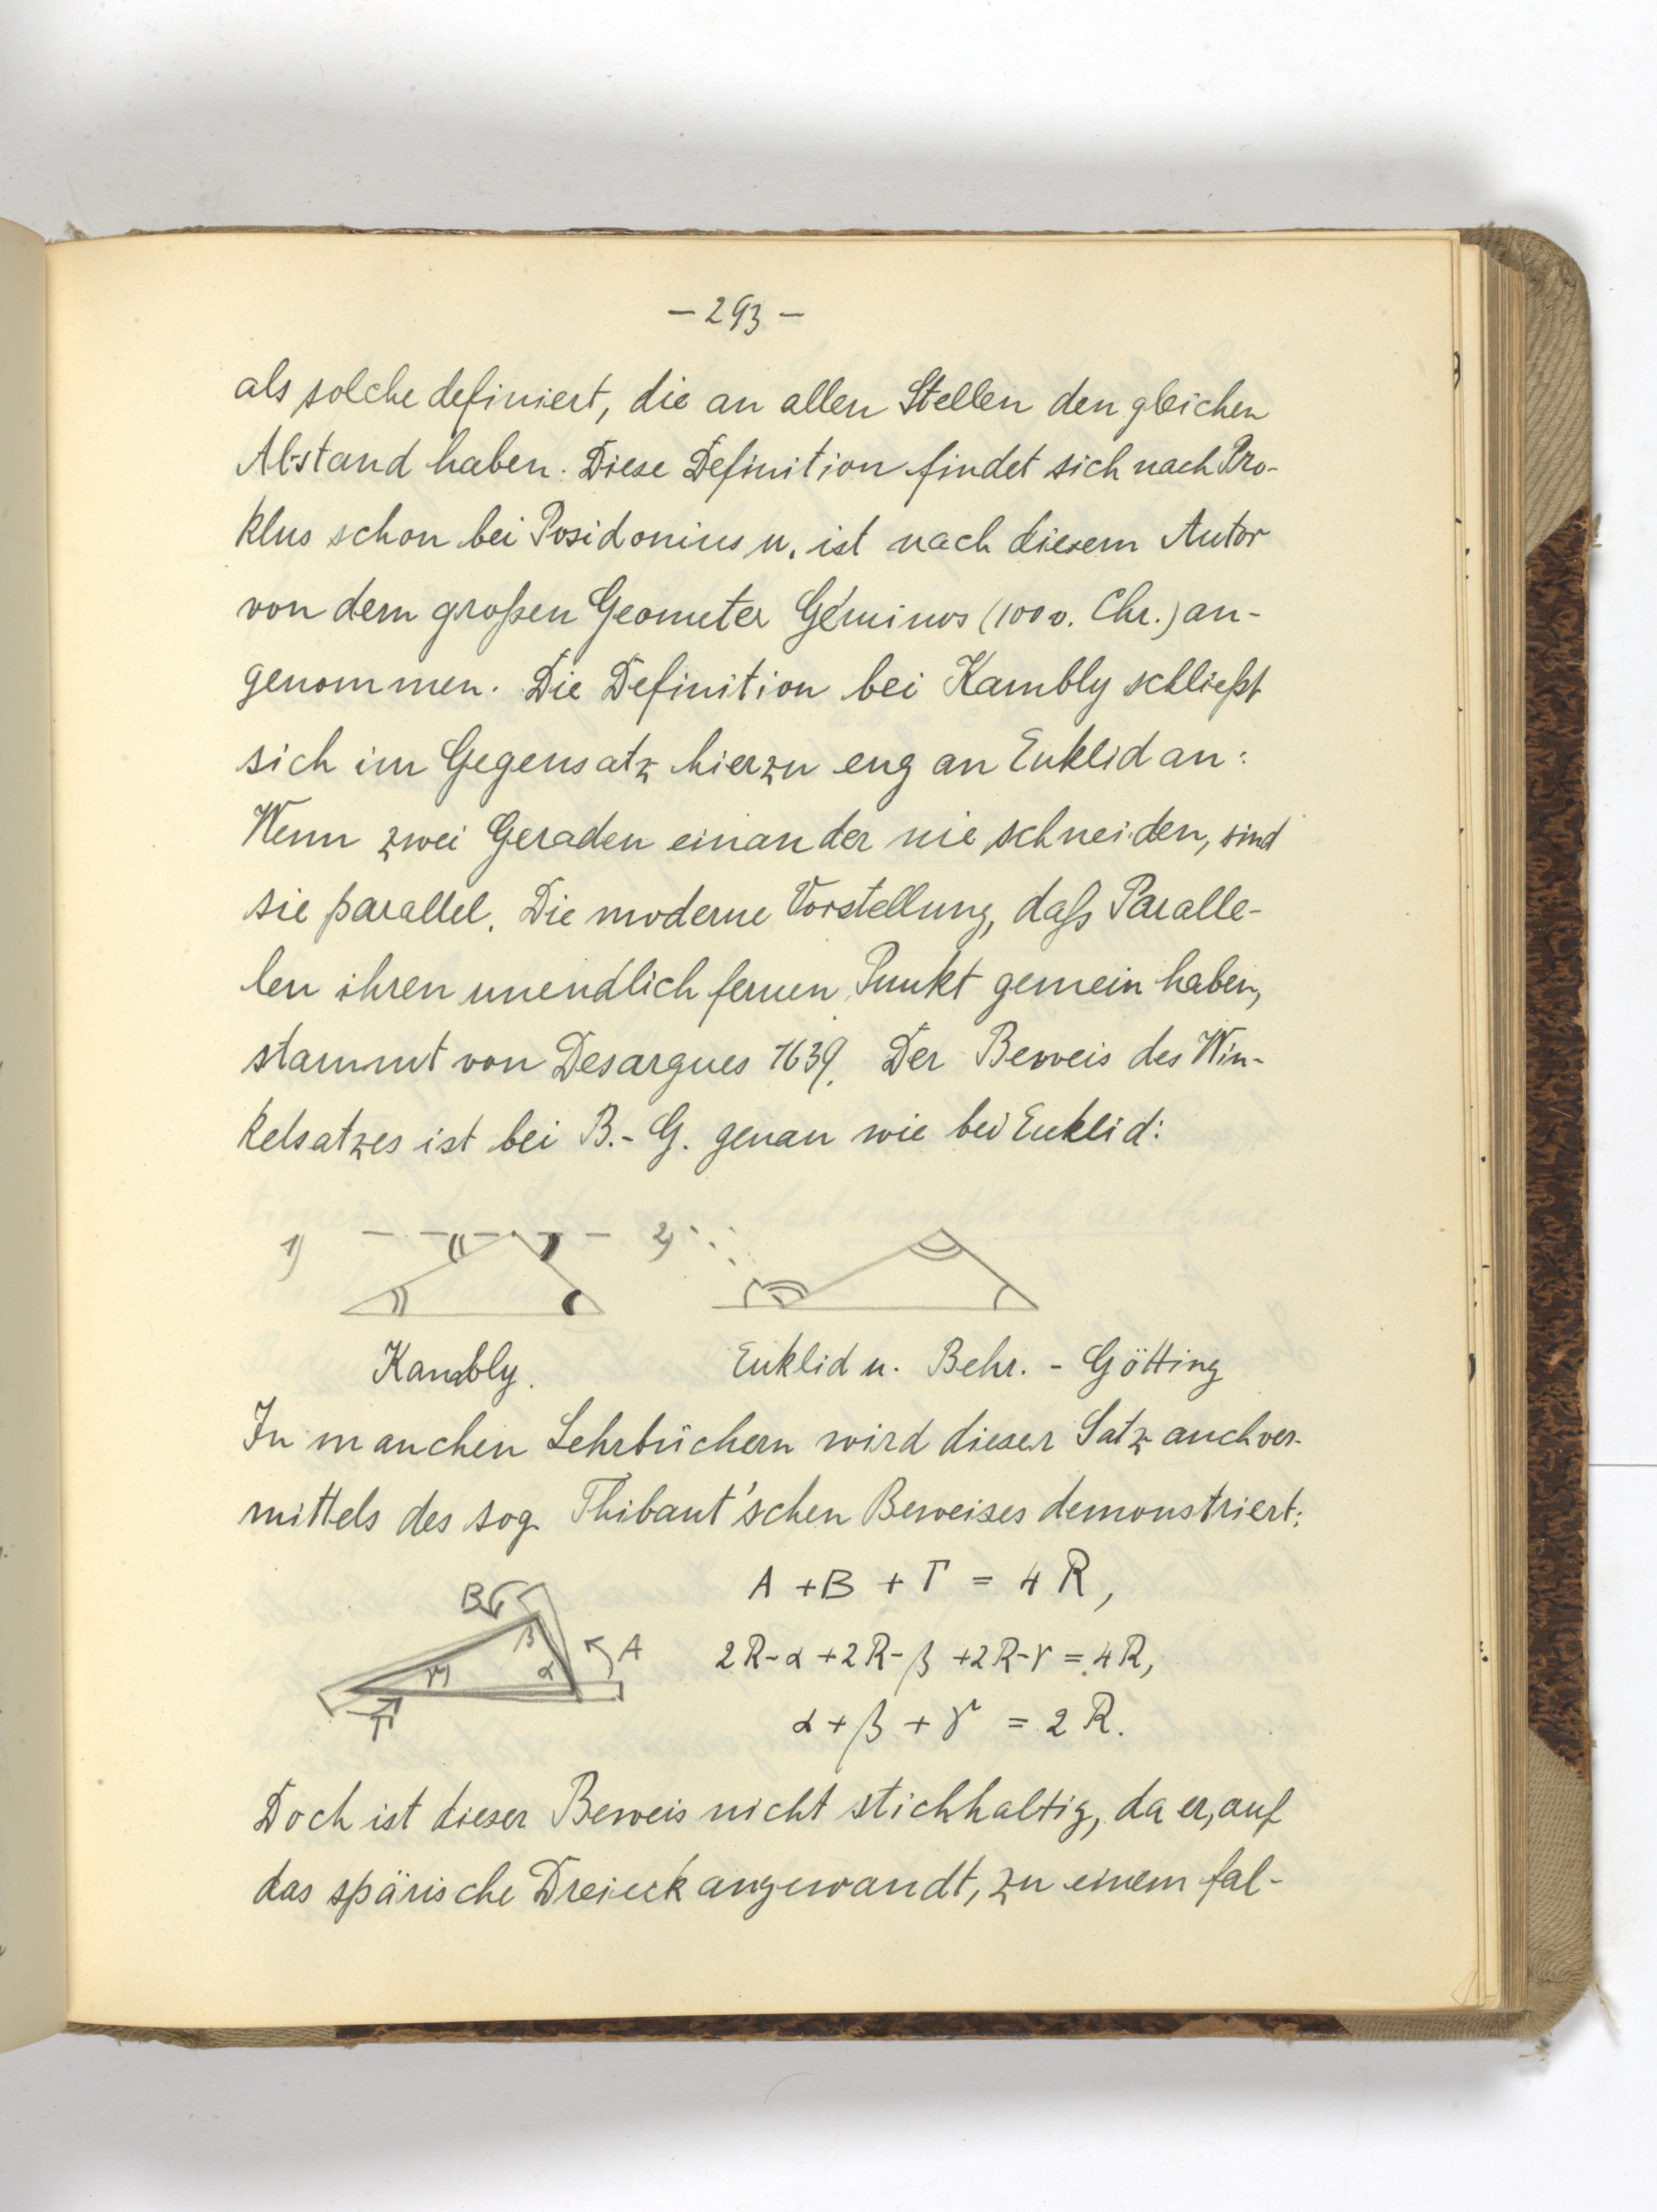 – 293 –
als solche definiert, die an allen Stellen den gleichen
Abstand haben. Diese Definition findet sich nach Pro-
klus schon bei Posidonius u. ist nach diesem Autor
von dem großen Geometer Géminos (100 v. Chr.) an-
genommen. Die Definition bei Kambly schließt
sich im Gegensatz hierzu eng an Euklid an:
Wenn zwei Geraden einander nie schneiden, sind
sie parallel. Die moderne Vorstellung, daß Paralle-
len ihren unendlich fernen Punkt gemein haben,
stammt von Desargues 1639. Der Beweis des Win-
kelsatzes ist bei B.-G. genau wie bei Euklid:
1) 2)
Kambly. Euklid u. Behr. - Götting
In manchen Lehrbüchern wird dieser Satz auch ver-
mittels des sog. Thibaut'schen Beweises demonstriert:
A + B + Γ = 4 R,
2R-α+2R-β+2R-γ=4R,
α+β+γ = 2 R.
B β A γ α Γ
Doch ist dieser Beweis nicht stichhaltig, da er, auf
das spärische Dreieck angewandt, zu einem fal-